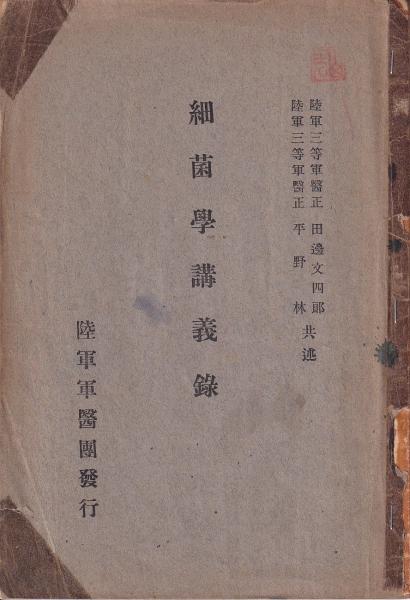 陸軍三等軍醫正 田邊文四郎
陸軍三等軍醫正 平野林 共述
細菌學講義錄
陸軍軍醫團發行